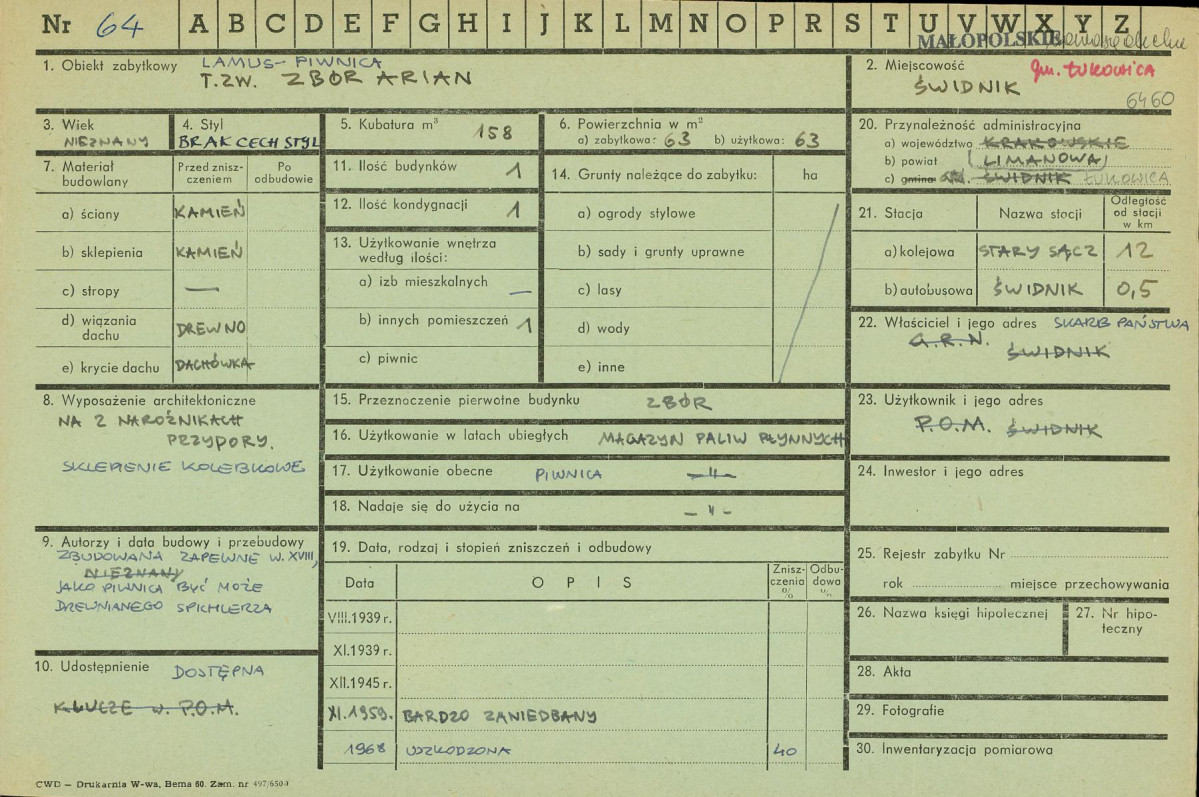 Nr 64 A B C D E F G H I J K L M N O P R S T U V W X Y Z
MAŁOPOLSKIE
1. Obiekt zabytkowy LAMUS-PIWNICA
T.ZW. ZBÓR ARIAN
2. Miejscowość gm. ŁUKOWICA
ŚWIDNIK
6460
3. Wiek
NIEZNANY
4. Styl
BRAK CECH STYL
5. Kubatura m³ 158
6. Powierzchnia w m²
a) zabytkowa: 63 b) użytkowa: 63
20. Przynależność administracyjna
a) województwo KRAKOWSKIE
b) powiat (LIMANOWA)
c) gmina ŚWIDNIK ŁUKOWICA
7. Materiał budowlany
Przed znisz-
czeniem
Po
odbudowie
a) ściany KAMIEŃ
b) sklepienia KAMIEŃ
c) stropy —
d) wiązania
dachu DREWNO
e) krycie dachu DACHÓWKA
11. Ilość budynków 1
12. Ilość kondygnacji 1
13. Użytkowanie wnętrza
według ilości:
a) izb mieszkalnych —
b) innych pomieszczeń 1
c) piwnic
14. Grunty należące do zabytku: ha
a) ogrody stylowe
b) sady i grunty uprawne
c) lasy
d) wody
e) inne
21. Stacja
Nazwa stacji
Odległość
od stacji
w km
a) kolejowa STARY SĄCZ 12
b) autobusowa ŚWIDNIK 0,5
22. Właściciel i jego adres SKARB PAŃSTWA
G.R.N. ŚWIDNIK
8. Wyposażenie architektoniczne
NA 2 NAROŻNIKACH
PRZYPORY.
SKLEPIENIE KOLEBKOWE
15. Przeznoczenie pierwotne budynku ZBÓR
16. Użytkowanie w latach ubiegłych MAGAZYN PALIW PŁYNNYCH
17. Użytkowanie obecne PIWNICA —"—
18. Nadaje się do użycia na —"—
23. Użytkownik i jego adres
P.O.M. ŚWIDNIK
24. Inwestor i jego adres
9. Autorzy i data budowy i przebudowy
ZBUDOWANA ZAPEWNE W. XVIII,
NIEZNANY
JAKO PIWNICA BYĆ MOŻE
DREWNIANEGO SPICHLERZA
10. Udostępnienie DOSTĘPNA
KLUCZE W P.O.M.
19. Data, rodzaj i stopień zniszczeń i odbudowy
Data
OPIS
Znisz-
czenia
%
Odbu-
dowa
%
VIII.1939 r.
XI.1939 r.
XII.1945 r.
XI.1959. BARDZO ZANIEDBANY
1968 USZKODZONA 40
25. Rejestr zabytku Nr
rok miejsce przechowywania
26. Nazwa księgi hipotecznej
27. Nr hipo-
teczny
28. Akta
29. Fotografie
30. Inwentaryzacja pomiarowa
CWD — Drukarnia W-wa, Bema 60. Zam. nr 497/650-0